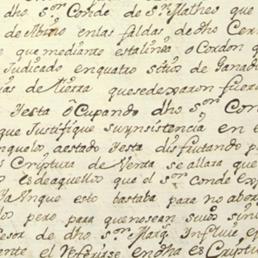 dho s.or Conde de S.n Matheo que
de Albino en las faldas, de dho Cerr
e que mediante esta linea o Cordon q
Judicado en quatro sitios de Ganado
ias de tierra que se dexaron fuera
Y esta ôCupando dho s.or Con
que Justifique su ynsistencia en e
nquelo, aestado Yesta disfrutando p
esCriptura de Venta se allara que
es de aquellos que el s.or conde exp
Ya Vnque esto bastaba para no abor
los pero para que no sean suios sino
cesor de dho s.or Marq. Influie en
ente el Referirse en dha esCriptu